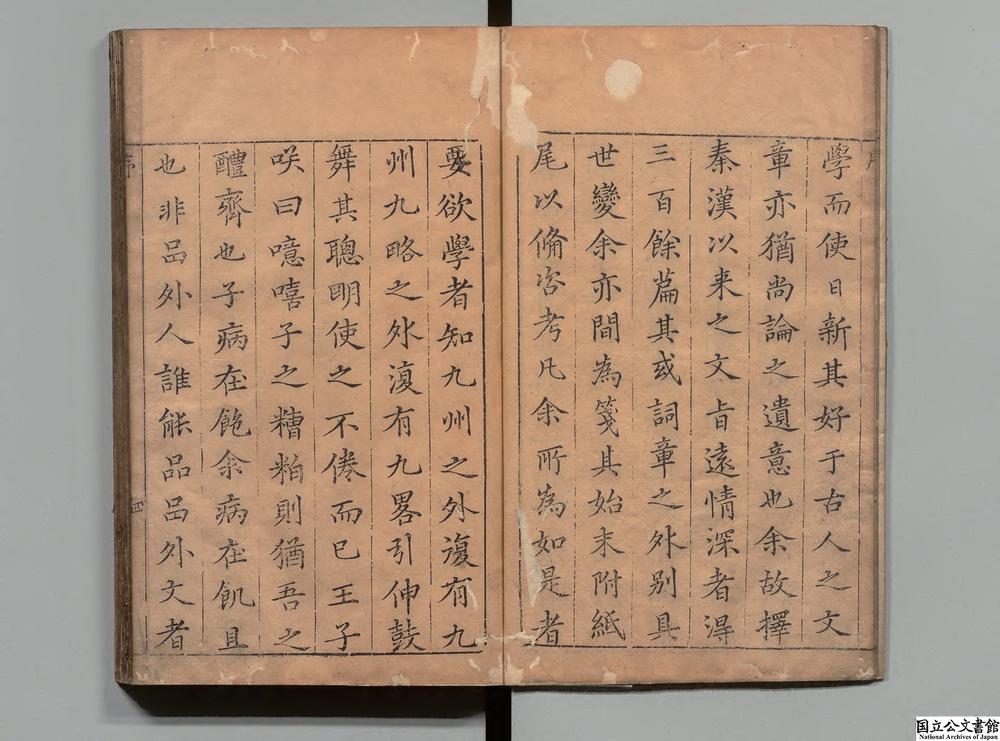 學而使日新其好于古人之文
章亦猶尚論之遺意也余故擇
秦漢以来之文旨遠情深者淂
三百餘篇其或詞章之外别具
世變余亦間為箋其始末附紙
尾以俻咨考凡余所為如是者
要欲學者知九州之外復有九
州九略之外復有九畧引伸鼓
舞其聰明使之不倦而已王子
咲曰噫嘻子之糟粕則猶吾之
醴齊也子病在飽余病在飢且
也非品外人誰能品品外文者
序
四
国立公文書館
National Archives of Japan